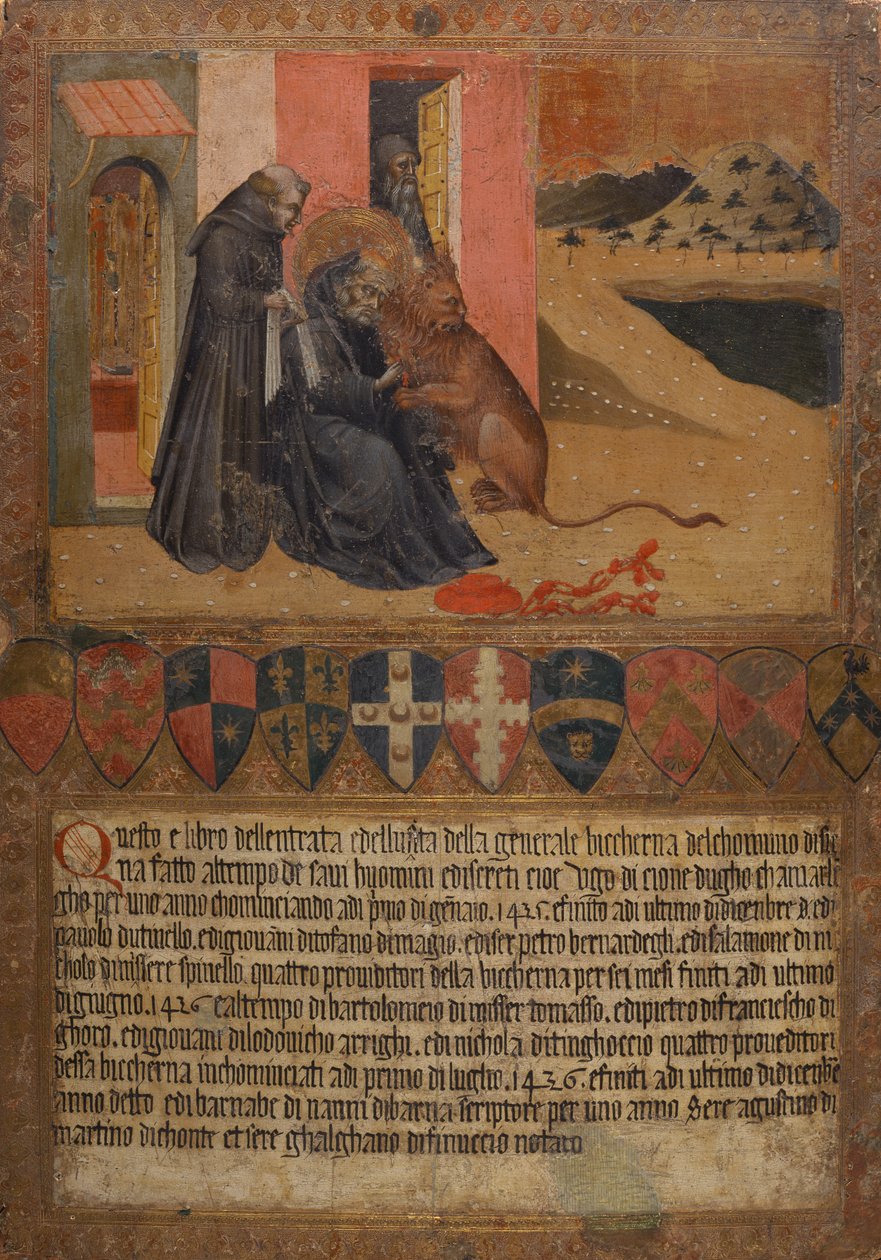 Questo e libro dellentrata e delluscita della generale biccherna del chomuno di sie
na fatto al tempo de savi huomini e discreti cioe Ugo di cione dugho chamarlē
gho per uno anno chominciando adi pimo di gēnaio. 1435. efinito adi ultimo di dicenbre edi
pauolo du tinello. edi giovāni di tofano di magio. ediser petro bernardegli. edi salamone di ni
cholo di missere spinello. quattro providitori della biccherna per sei mesi finiti adi ultimo
di giugno. 1436 e al tempo di bartolomeio di misser tomasso. edi pietro di francescho di
ghoro. edi giovani di lodovicho arrighi. edi nichola di tinghoccio quattro proveditori
dessa biccherna inchominciati adi primo di luglio. 1436. efiniti adi ultimo di dicenbē
anno detto edi barnabe di nanni di barna scriptore per uno anno Sere agustino di
martino di chonte et sere ghalghano di finuccio notaio